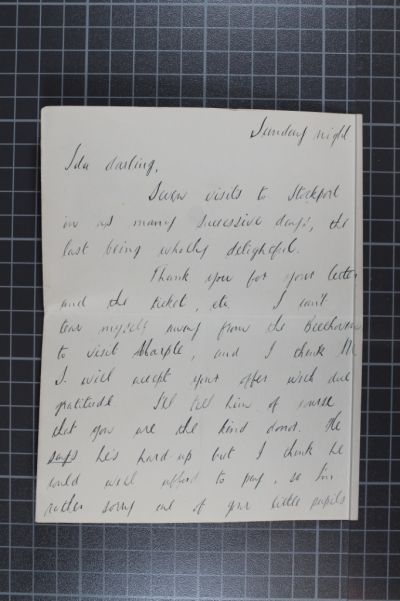 Sunday night.
Ida darling,
Seven visits to Stockport
in as many successive days, the
last being wholly delightful.
Thank you for your letter
and the ticket, etc. I can't
tear myself away from the Beethoven
to visit Marple, and I think Mr
J. will accept your offer with due
gratitude. I'll tell him of course
that you are the kind donor. He
says he's hard-up but I think he
could well afford to pay, so I'm
rather sorry one of your little pupils